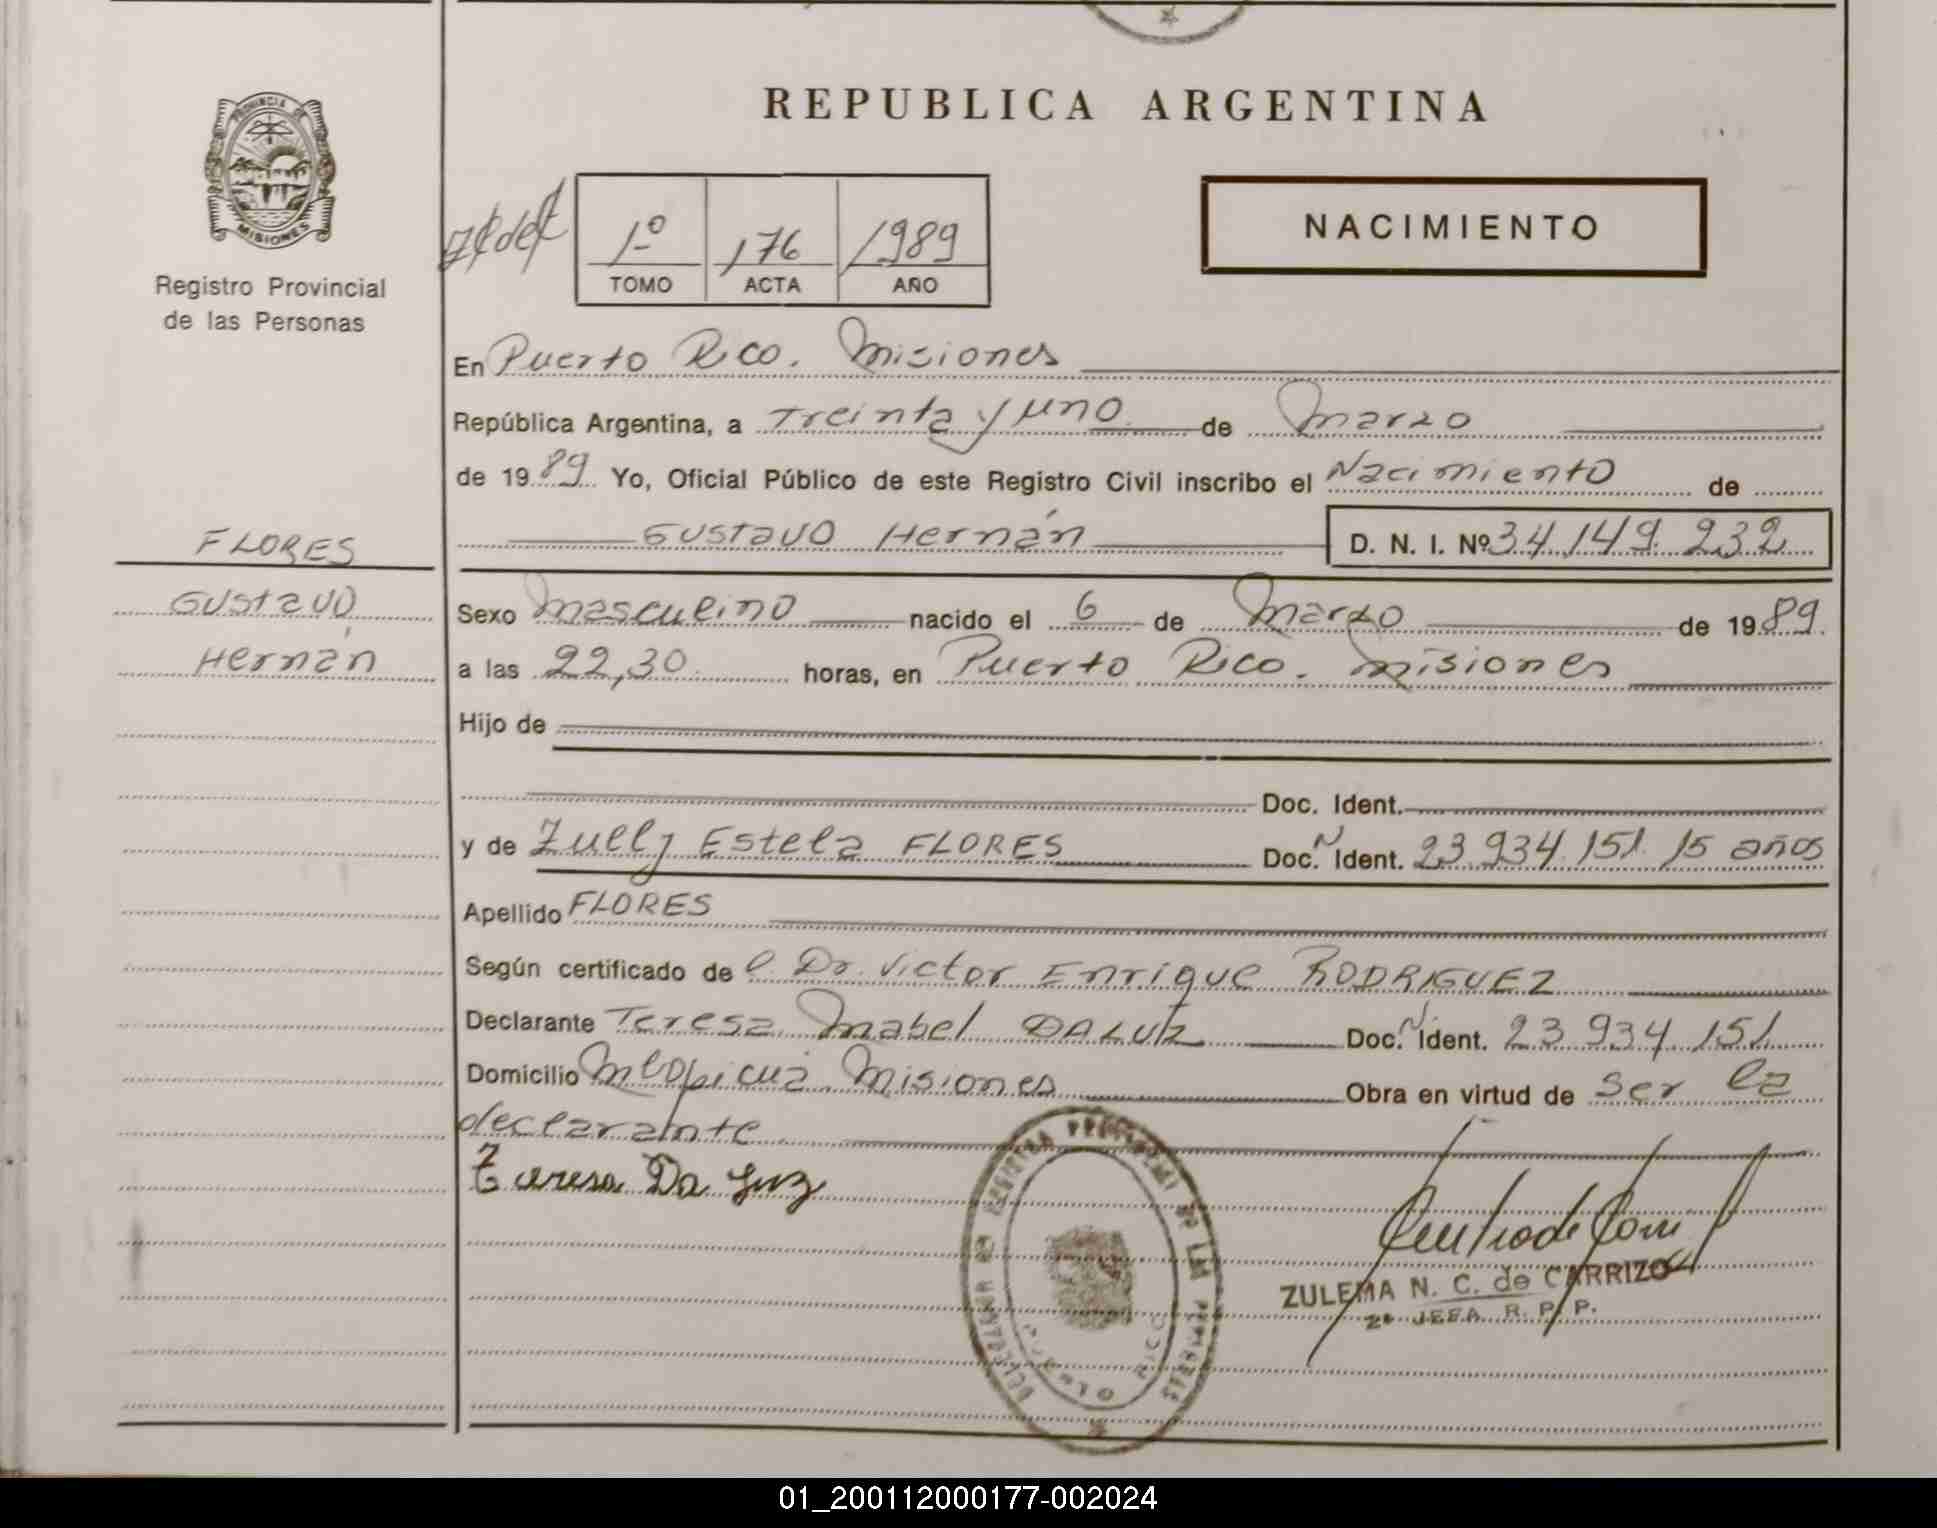 REPUBLICA ARGENTINA
PROVINCIA DE
MISIONES
Registro Provincial
de las Personas
1º 176 1989
TOMO ACTA AÑO
NACIMIENTO
En Puerto Rico. Misiones
República Argentina, a Treinta y uno de Marzo
de 1989 Yo, Oficial Público de este Registro Civil inscribo el Nacimiento de
Gustavo Hernán D. N. I. Nº 34.149.232
FLORES
Gustavo
Hernán
Sexo Masculino nacido el 6 de Marzo de 1989
a las 22,30 horas, en Puerto Rico. Misiones
Hijo de
Doc. Ident.
y de Zully Estela FLORES Doc. N Ident. 23.934.151. 15 años
Apellido FLORES
Según certificado de l Dr. Victor Enrique RODRIGUEZ
Declarante Teresa Mabel DALUZ Doc. N Ident. 23.934.151
Domicilio Misiones Obra en virtud de ser la
declarante
Teresa Da Luz
ZULEMA N. C. de CARRIZO
2ª JEFA R. P. P.
01_200112000177-002024